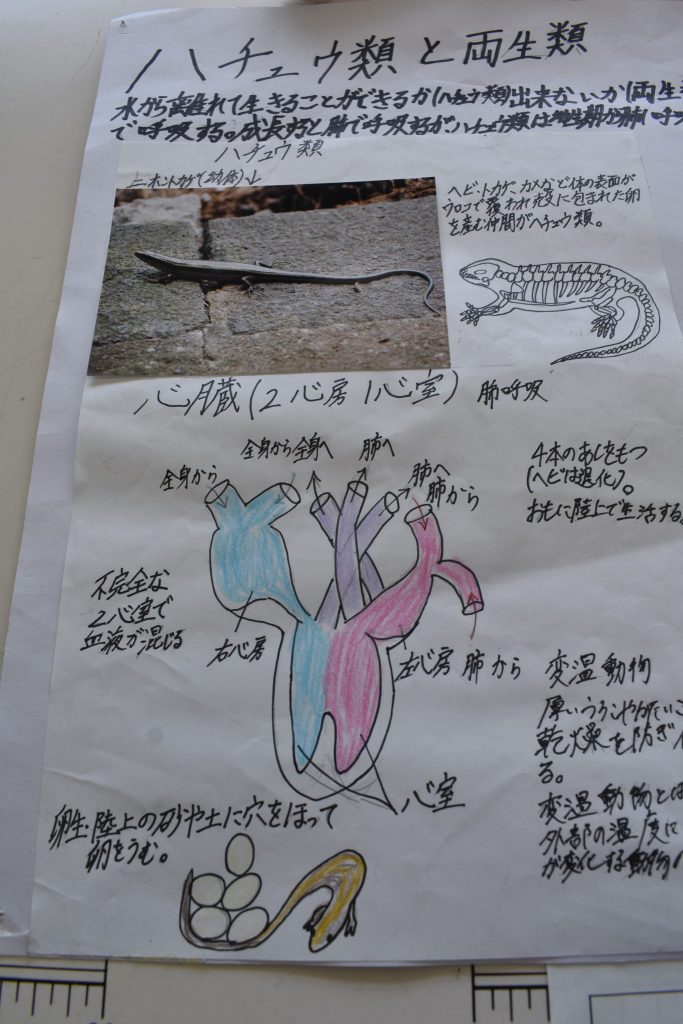 ハチュウ類と両生類
水から離れて生きることができるか(ハチュウ類)出来ないか(両生
で呼吸する。成長すると肺で呼吸するが、ハチュウ類は 肺呼
ハチュウ類
ニホントカゲ(幼体)↓
ヘビ、トカゲ、カメなど体の表面が
ウロコで覆われ殻に包まれた卵
を産む仲間がハチュウ類。
心臓(2心房1心室) 肺呼吸
全身から 全身から 全身へ 肺へ 肺へ
肺から
4本のあしをもつ
(ヘビは退化)。
おもに陸上で生活する。
不完全な
2心室で
血液が混じる
右心房 左心房 肺から
変温動物
厚いうろこやかたいこ
乾燥を防ぎ
る。
心室
変温動物とは
外部の温度に
が変化する動物
卵生:陸上の砂や土に穴をほって
卵をうむ。